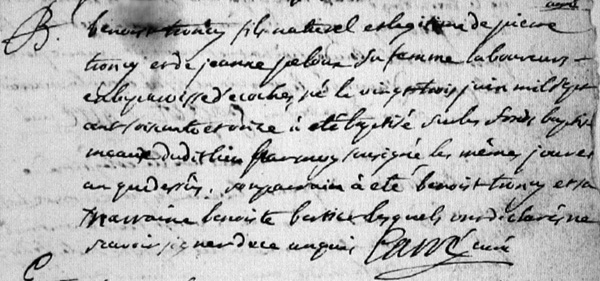 B. benoist troncy fils naturel et legitime de pierre
troncy et de jeanne peloux sa femme laboureurs
en la paroisse d'ecoches, né le vingt trois juin mil sept
cent soixante et onze à eté baptisé sur les fonds baptis
meaux dudit lieu par moy soussigné les mêmes jour et
an que dessûs. son parrain à eté benoist troncy et sa
marraine benoite lesquels ont déclarés ne
savoir signer de ce enquis curé